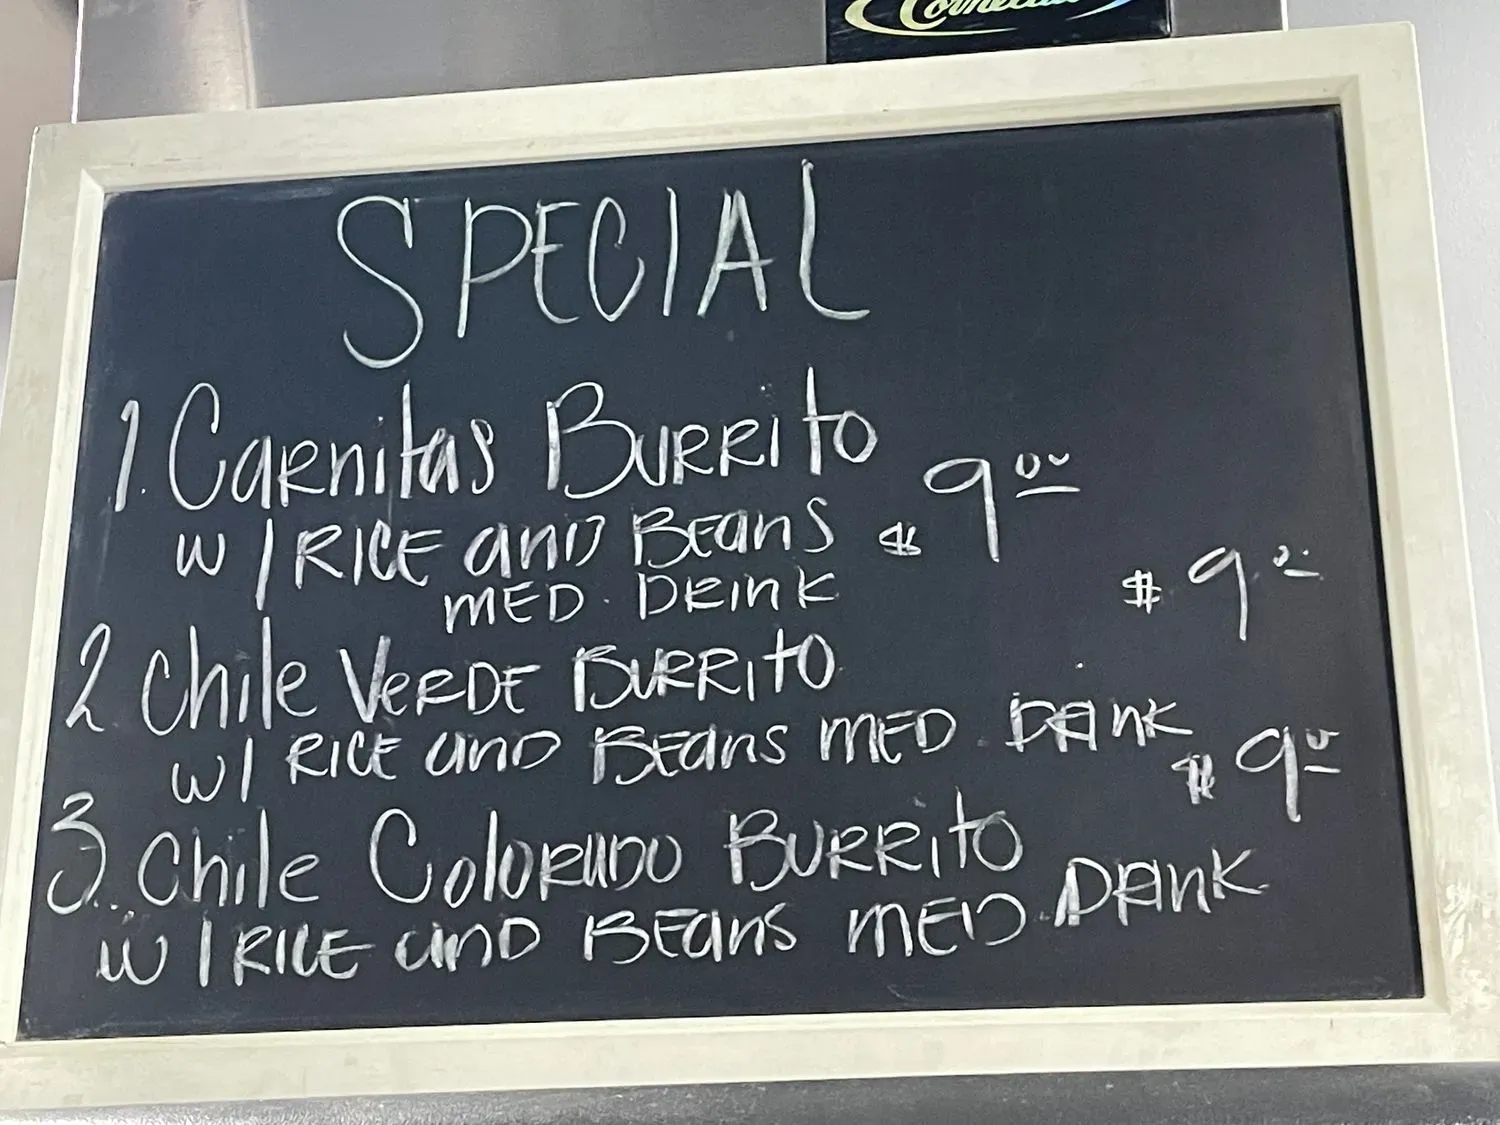 Cornelius
SPECIAL
1. Carnitas Burrito
w/ RICE and Beans $ 9 00
MED. Drink
2 Chile Verde Burrito $ 9 00
w/ RICE and Beans MED. Drink
3. Chile Colorado Burrito $ 9 00
w/ RICE and Beans MED. Drink